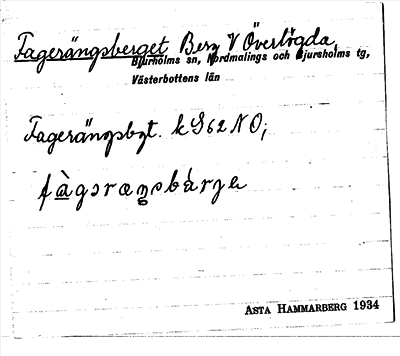 Fagerängsberget Berg V Överlögda,
Bjurholms sn, Nordmalings och Bjursholms tg,
Västerbottens län
Fagerängsbgt. kS62NO;
ASTA HAMMARBERG 1934